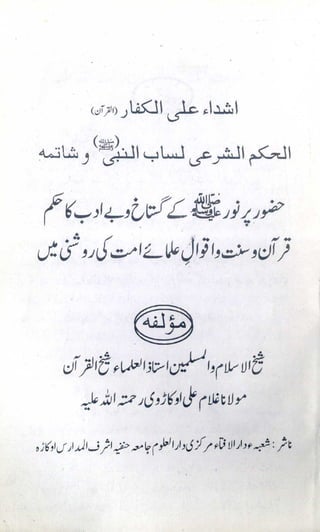 اشداء علی الکفار (القرآن)
الحکم الشرعی لساب النبی (ﷺ) و شاتمه
حضور پر نور ﷺ کے گستاخ و بے ادب کا حکم
قرآن و سنت و اقوالِ علمائے امت کی روشنی میں
مؤلفه
شیخ الاسلام والمسلمین استاذ العلماء شیخ القرآن
مولانا غلام علی اوکاڑوی رحمتہ اللہ علیہ
ناشر: شعبہء دار الافتاء مرکزی دار العلوم جامعہ حنفیہ اشرف المدارس اوکاڑہ